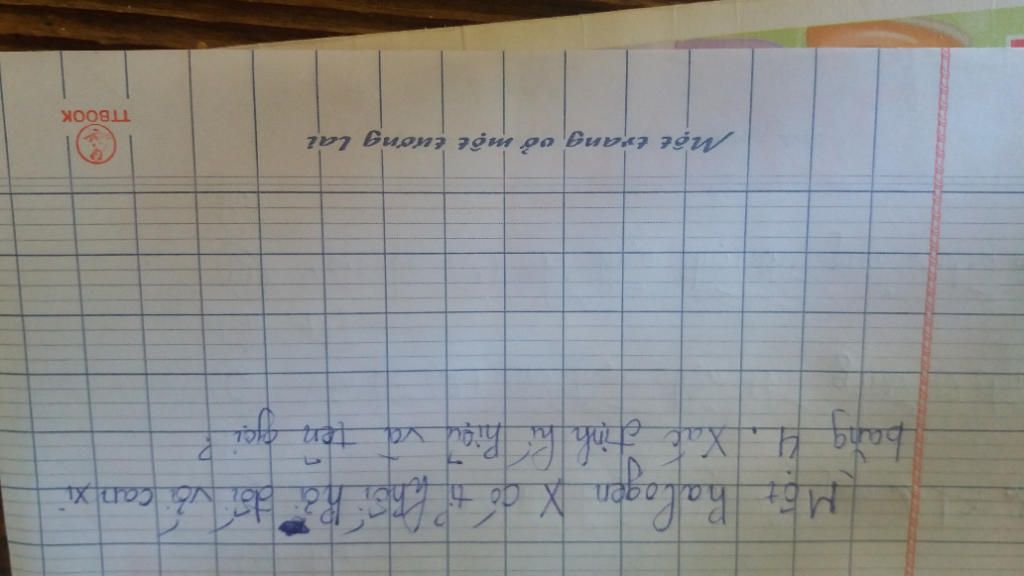 Một halogen X có tỉ khối hơi đối với canxi
bằng 4. Xác định kí hiệu và tên gọi?
Một trang vở một tương lai
TTBOOK